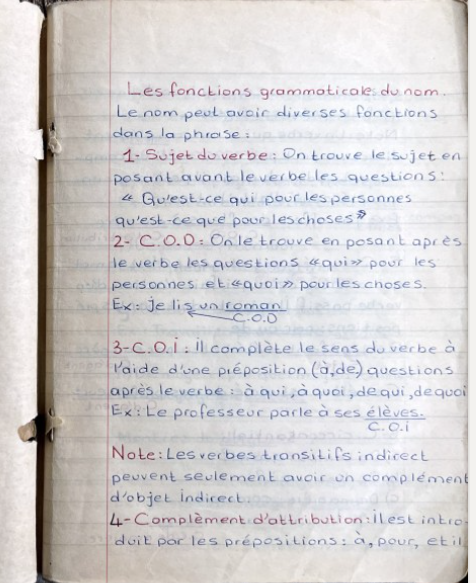 Les fonctions grammaticale du nom.
Le nom peut avoir diverses fonctions
dans la phrase :
1- Sujet du verbe : On trouve le sujet en
posant avant le verbe les questions :
« Qu'est-ce qui pour les personnes
qu'est-ce que pour les choses »
2- C.O.D : On le trouve en posant après
le verbe les questions «qui» pour les
personnes et «quoi» pour les choses.
Ex : je lis un roman
C.O.D
3-C.O.i : il complète le sens du verbe à
l'aide d'une préposition (à,de) questions
après le verbe : à qui, à quoi, de qui, de quoi
Ex : Le professeur parle à ses élèves.
C.O.i
Note : Les verbes transitifs indirect
peuvent seulement avoir un complément
d'objet indirect.
4- Complément d'attribution : il est intro-
duit par les prépositions : à, pour, et il